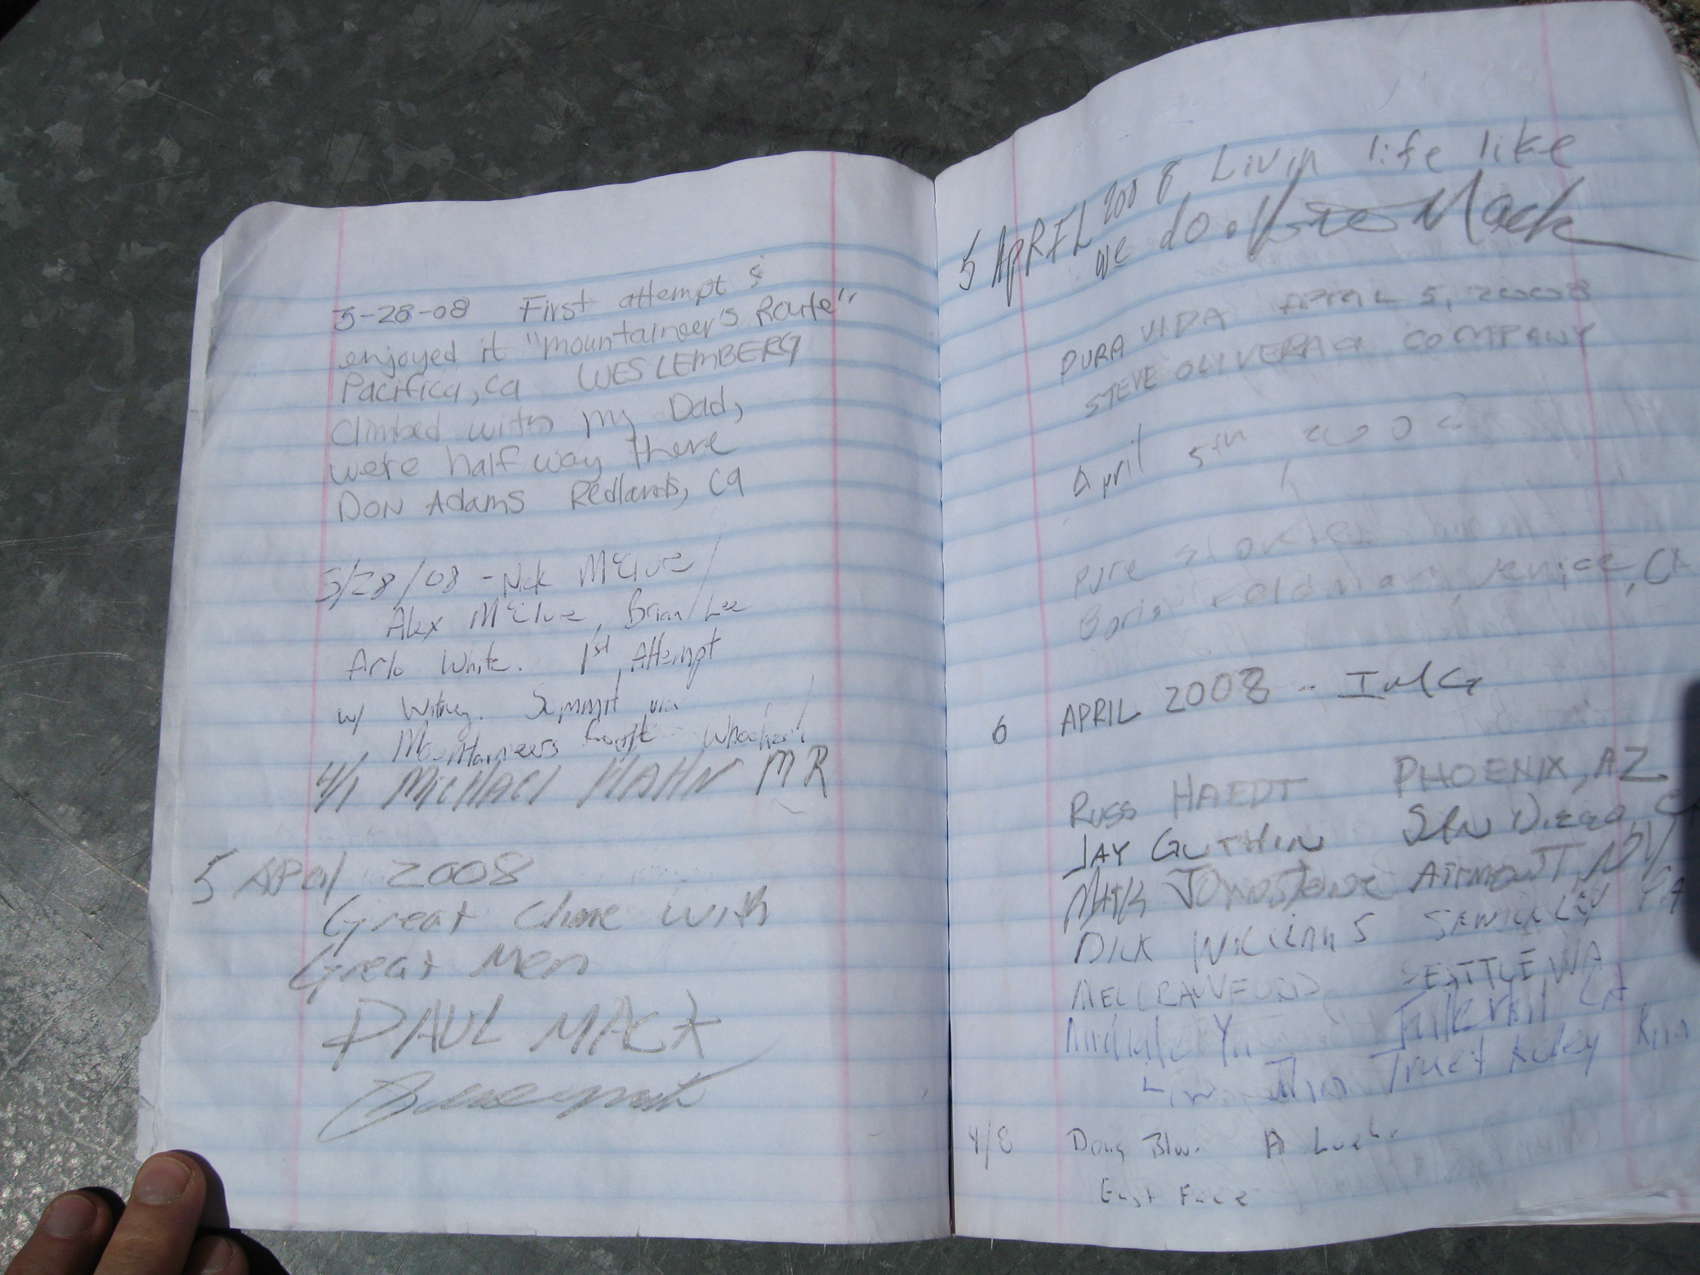 5-28-08 First attempt &
enjoyed it "mountaineer's Route"
Pacifica, ca WES LEMBERG
Climbed with my Dad,
were half way there
DON Adams Redlands, ca
5/28/08 - Nick McClure
Alex McClure, Brian Lee
Arlo White. 1st Attempt
w/ Witney. Summit via
Mountaineers Route
4/1 MICHAEL HAHN MR
5 April 2008
Great Clime with
Great Men
PAUL MACK
5 APRIL 2008 Livin life like
we do. Mack
PURA VIDA APRIL 5, 2008
STEVE COMPANY
April 5th 2008
Pure
Boris Feldman, Venice, CA
6 APRIL 2008 - IMG
RUSS HAEDT PHOENIX, AZ
JAY GUTHIN SAN DIEGO, C
MARK JOHNSTONE AIRMONT, NY
DICK WILLIAMS SEWICKLEY PA
MEL CRAWFORD SEATTLE WA
4/8 Doug
East Face